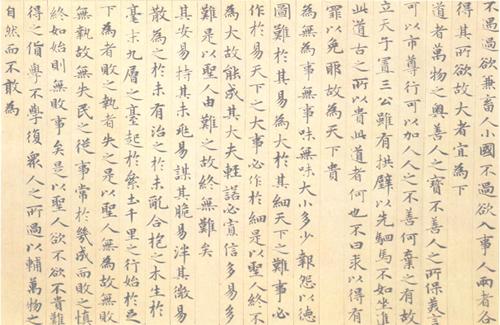 不過過欲兼畜人小國不過欲入事人兩者各
得其所欲故大者宜為下
道者萬物之奧善人之寶不善人之所保美言
可以市尊行可以加人人之不善何棄之有故
立天子置三公雖有拱璧以先駟馬不如坐進
此道古之所以貴此道者何也不曰求以得有
罪以免耶故為天下貴
為無為事無事味無味大小多少報怨以德
圖難於其易為大於其細天下之難事必
作於易天下之大事必作於細是以聖人終不
為大故能成其大夫輕諾必寡信多易多
難是以聖人由難之故終無難矣
其安易持其未兆易謀其脆易泮其微易
散為之於未有治之於未亂合抱之木生於
毫末九層之臺起於累土千里之行始於足
下為者敗之執者失之是以聖人無為故無敗
無執故無失民之從事常於幾成而敗之慎
終如始則無敗事矣是以聖人欲不欲不貴難
得之貨學不學復眾人之所過以輔萬物之
自然而不敢為